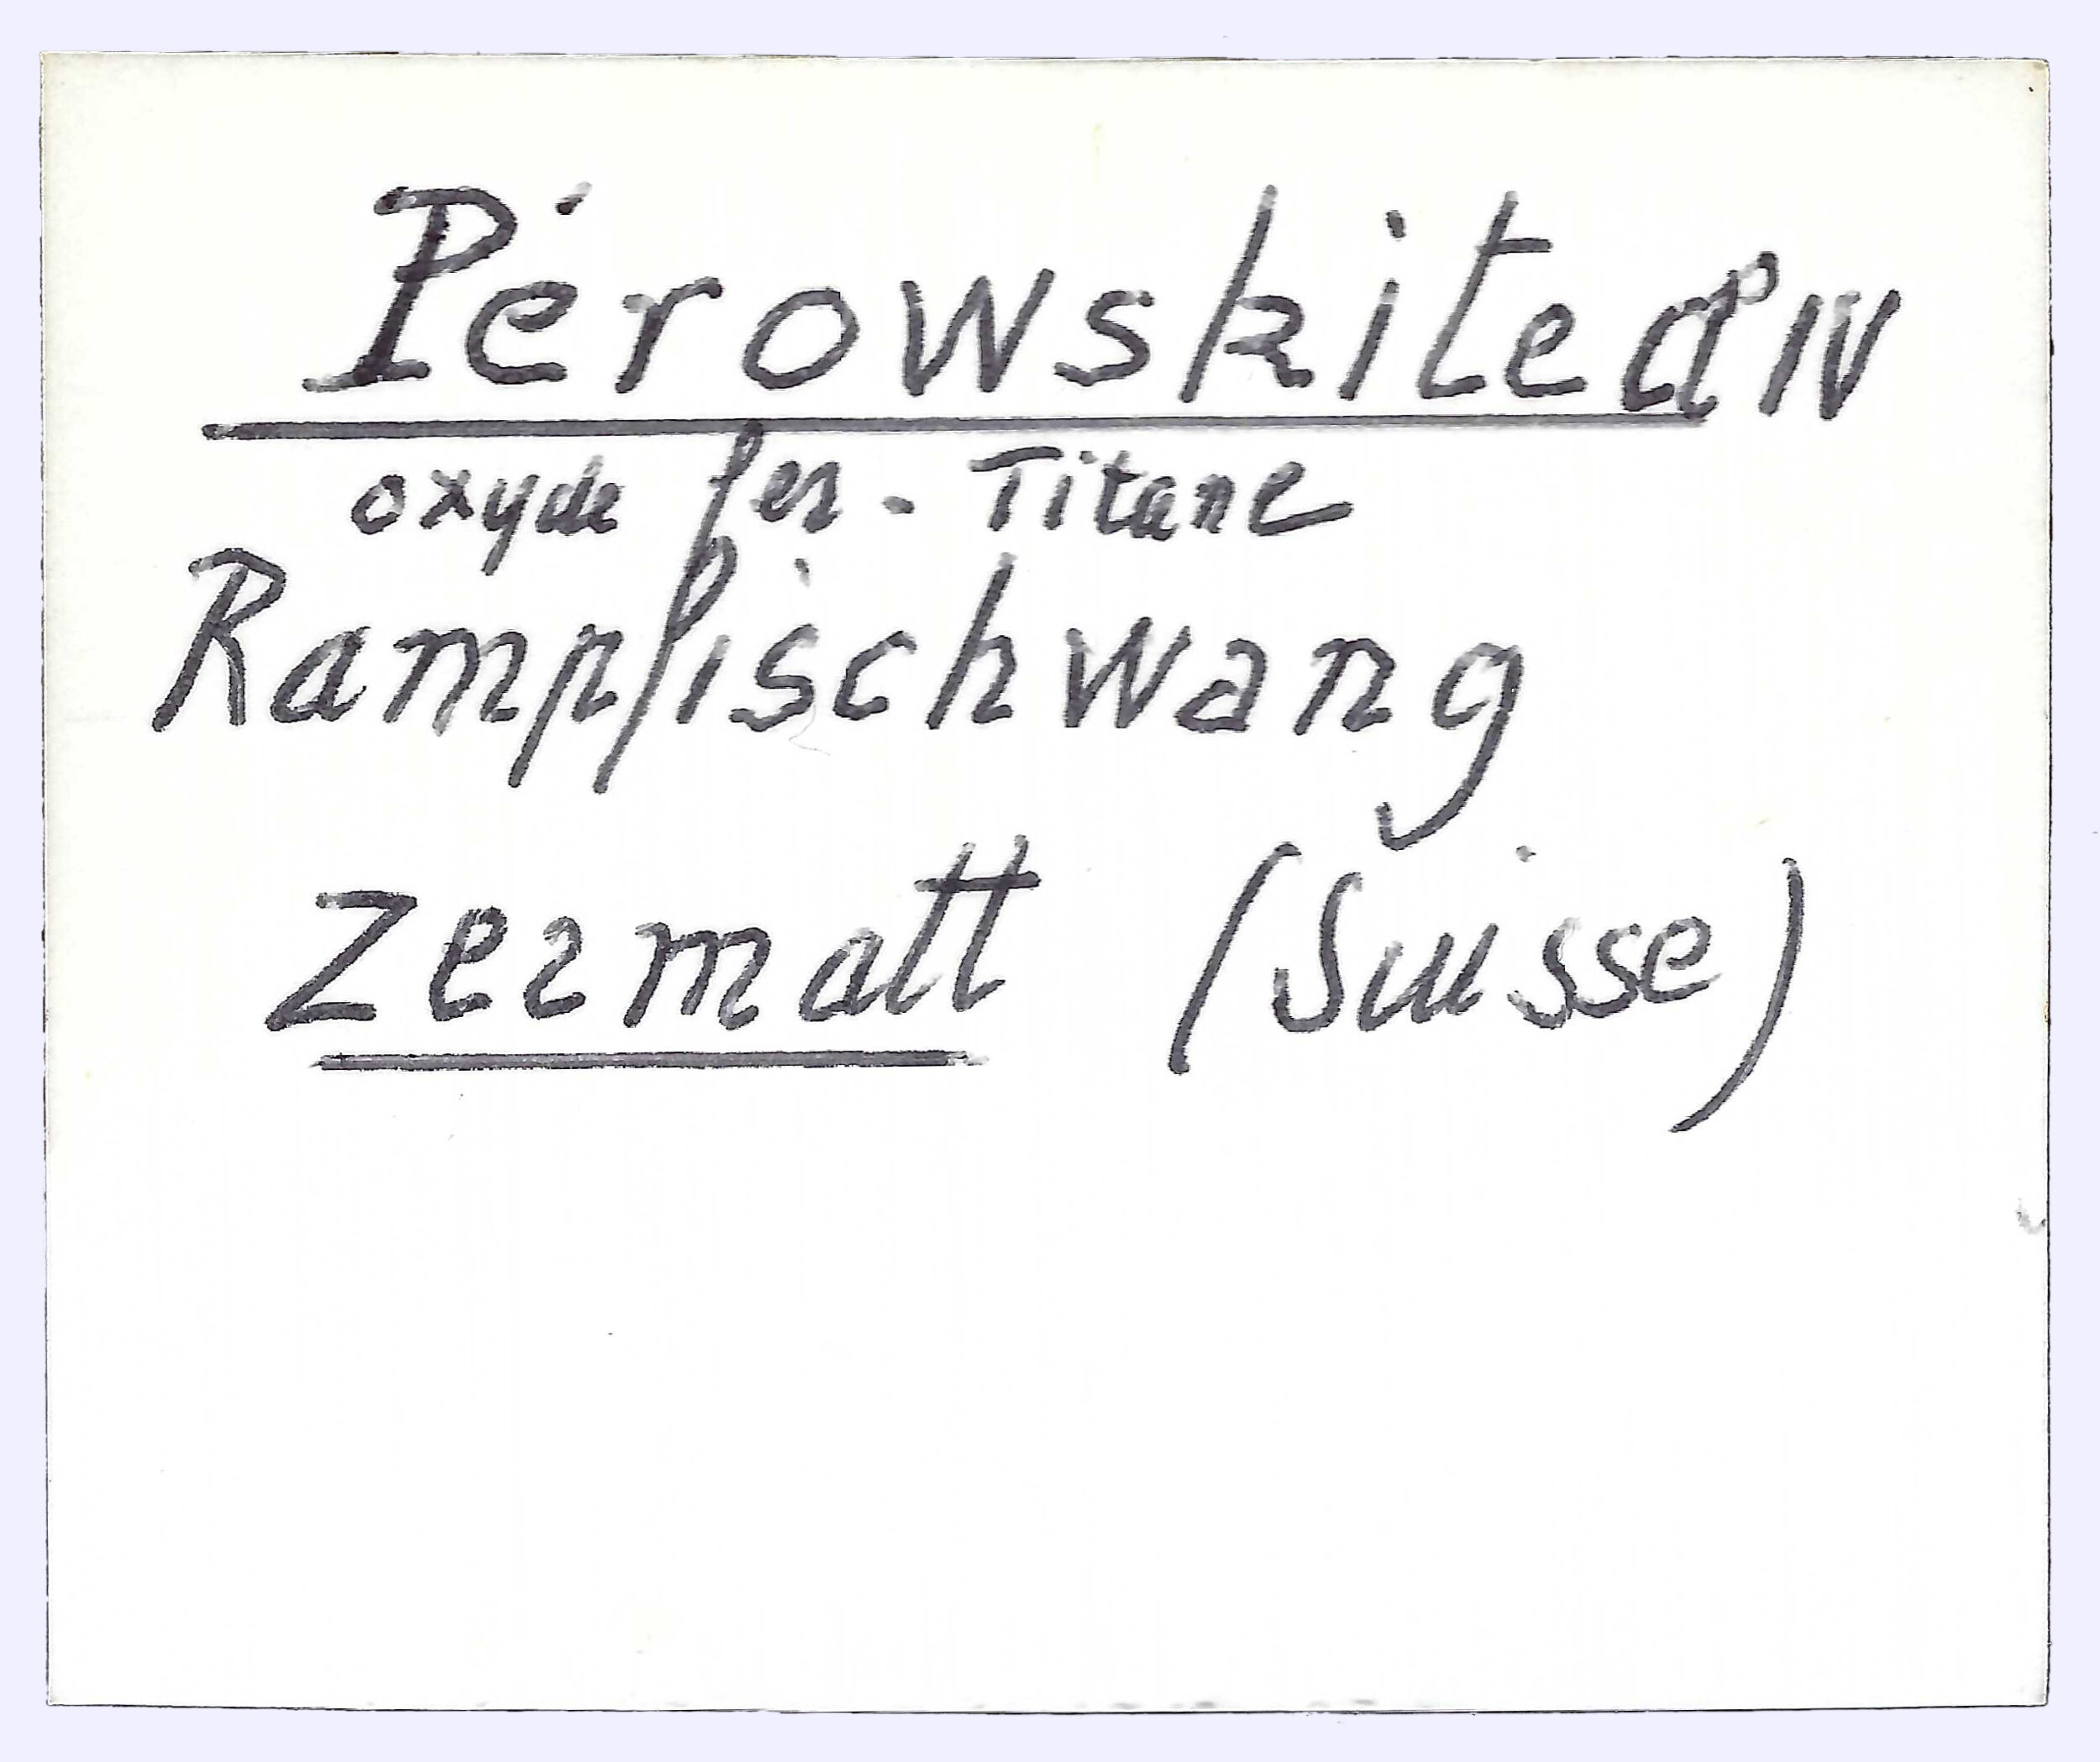 Pérowskite Cl° IV
oxyde fer - Titane
Rampfischwang
Zermatt (Suisse)